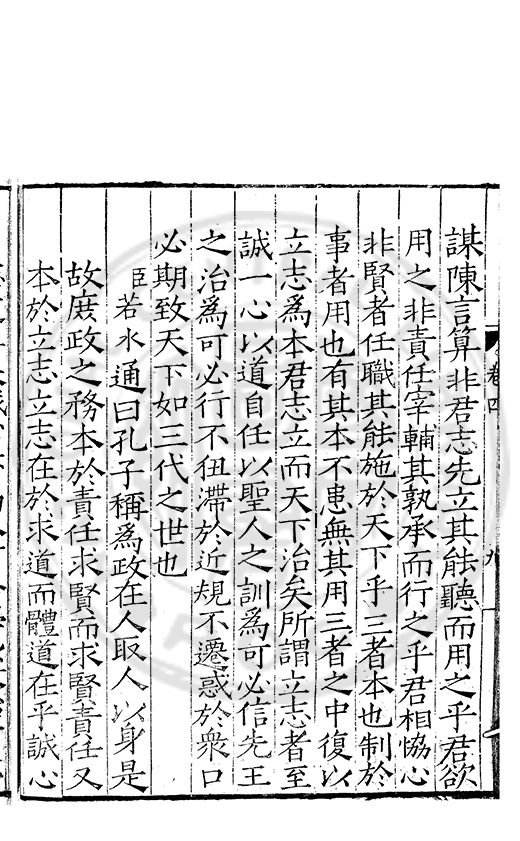 謀陳言算非君志先立其能聽而用之乎君欲
用之非責任宰輔其孰承而行之乎君相恊心
非賢者任職其能施於天下乎三者本也制於
事者用也有其本不患無其用三者之中復以
立志爲本君志立而天下治矣所謂立志者至
誠一心以道自任以聖人之訓爲可必信先王
之治爲可必行不狃滯於近規不遷惑於衆口
必期致天下如三代之世也
臣若水通曰孔子稱爲政在人取人以身是
故庶政之務本於責任求賢而求賢責任又
本於立志立志在於求道而體道在乎誠心
卷四
九